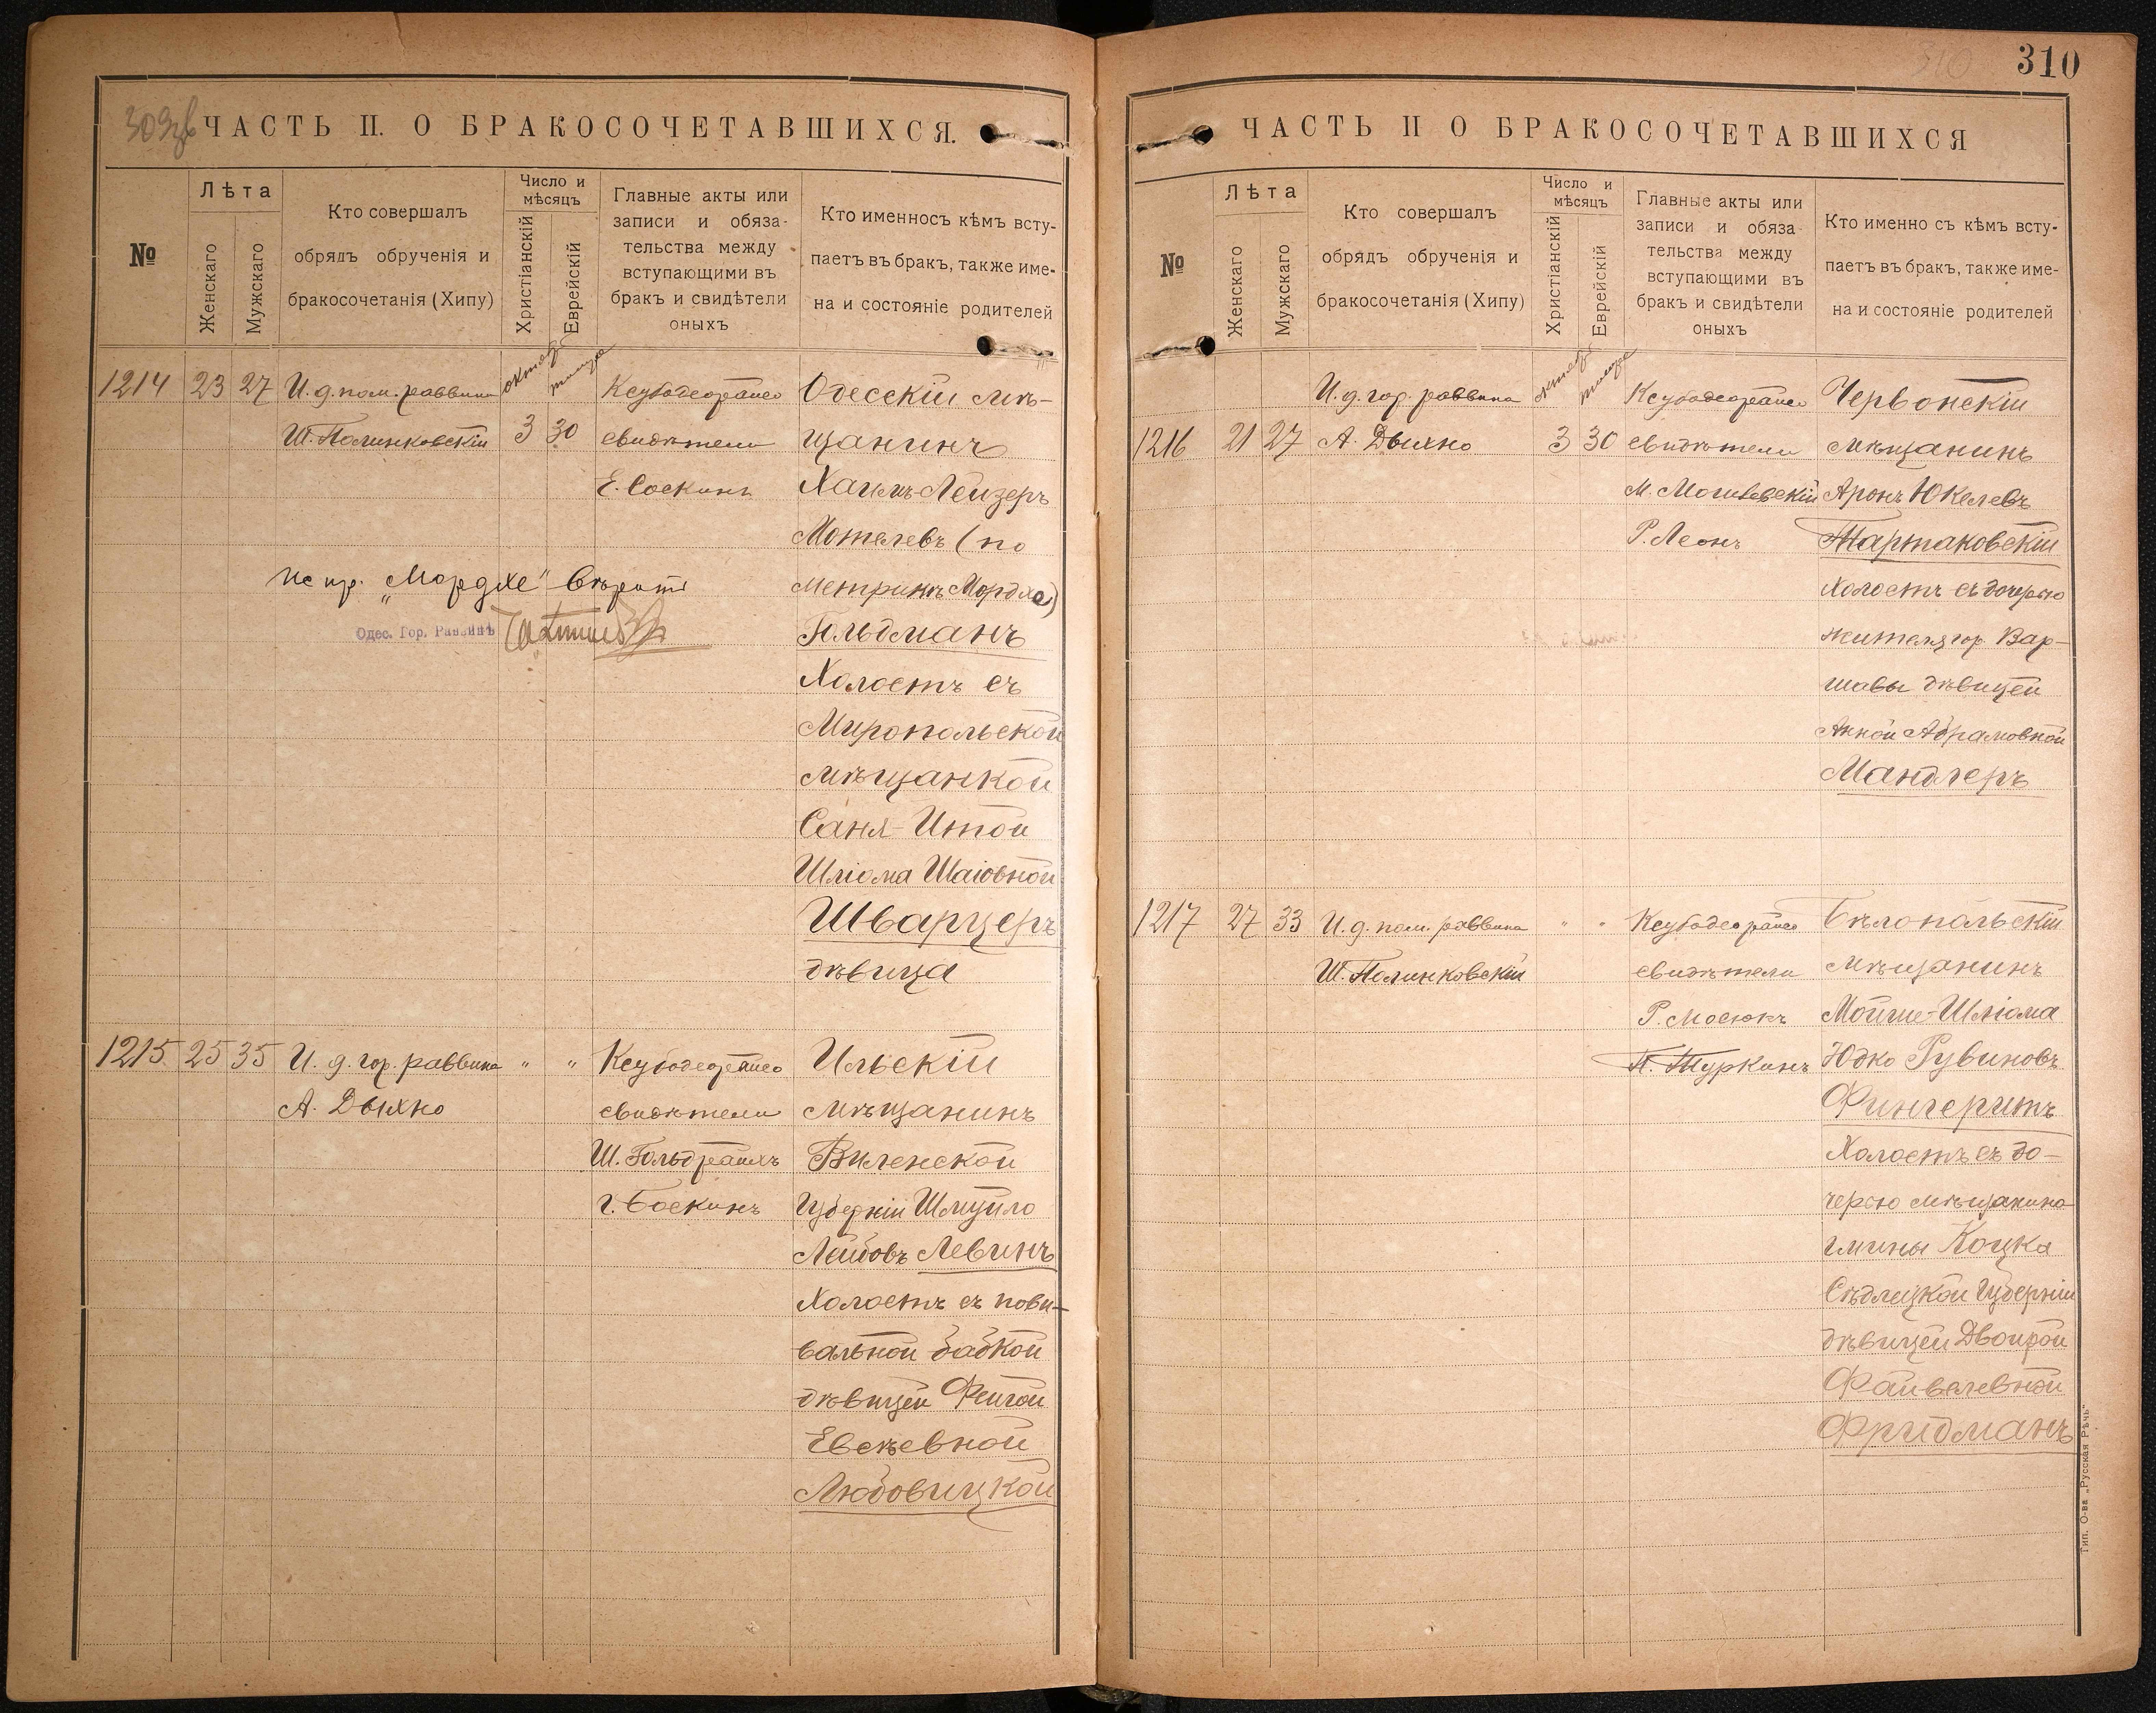 309 зв
ЧАСТЬ II. О БРАКОСОЧЕТАВШИХСЯ.
№
Лѣта
Женскаго
Мужскаго
Кто совершалъ
обрядъ обрученія и
бракосочетанія (Хипу)
Число и
мѣсяцъ
Христіанскій
Еврейскій
Главные акты или
записи и обяза-
тельства между
вступающими въ
бракъ и свидѣтели
оныхъ
Кто именносъ кѣмъ всту-
паетъ въ бракъ, также име-
на и состояніе родителей
1214 23 27
И. д. пом. раввина
Ш. Полинковскій
октяб
3
тишре
30
свидѣтели
Е. Соскинъ
Одесскій мѣ-
щанинъ
Хаимъ-Лейзеръ
Мотелевъ (по
метрикѣ Мордхе)
Гольдманъ
Холостъ съ
Миропольской
мѣщанкой
Саня-Итой
Шліома Шаіовной
Шварцеръ
дѣвица
Испр. „Мордхе" вѣрить
Одес. Гор. Раввинъ
1215 25 35
И. д. гор. раввина
А. Дыхно
" "
свидѣтели
Ш. Гольдрайхъ
Г. Боскинъ
Ильскій
мѣщанинъ
Виленской
Губерніи Шмуйло
Лейбовъ Левинъ
Холостъ съ пови-
вальной бабкой
дѣвицей Фейгой
Евсѣевной
Любовицкой
310
310
ЧАСТЬ II О БРАКОСОЧЕТАВШИХСЯ
№
Лѣта
Женскаго
Мужскаго
Кто совершалъ
обрядъ обрученія и
бракосочетанія (Хипу)
Число и
мѣсяцъ
Христіанскій
Еврейскій
Главные акты или
записи и обяза-
тельства между
вступающими въ
бракъ и свидѣтели
оныхъ
Кто именно съ кѣмъ всту-
паетъ въ бракъ, также име-
на и состояніе родителей
1216 21 27
И. д. гор. раввина
А. Дыхно
октяб
3
тишре
30
свидѣтели
М. Могилевскій
Р. Леонъ
Червонскій
мѣщанинъ
Аронъ Юкелевъ
Тартаковскій
Холостъ съ дочерью
жителя гор. Вар-
шавы дѣвицей
Анной Абрамовной
Мандлеръ
1217 27 33
И. д. пом. раввина
Ш. Полинковскій
" "
свидѣтели
Р. Мосюкъ
П. Туркинъ
Бѣлопольскій
мѣщанинъ
Мойше-Шліома
Юдко Рувиновъ
Фингеритъ
Холостъ съ до-
черью мѣщанина
гмины Коцка
Сѣдлецкой Губерніи
дѣвицей Двойрой
Файвелевной
Фридманъ
Тип. О-ва „Русская Рѣчь"